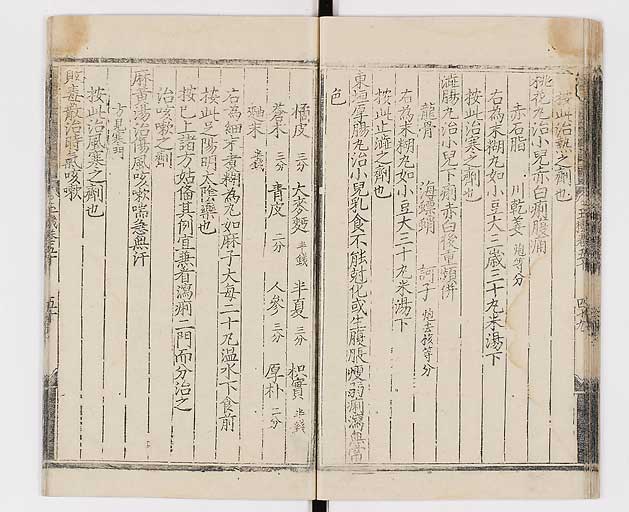 按此治熱之劑也
桃花丸治小兒赤白痢腹痛
赤石脂 川乾姜 炮等分
右為末糊丸如小豆大三歳三十丸米湯下
按此治寒之劑也
澁腸丸治小兒下痢赤白後重頻併
龍骨 海螵蛸 訶子 炮去核等分
右為末糊丸如小豆大三十丸米湯下
按此止澁之劑也
東垣厚腸丸治小兒乳食不能尅化或生腹脹瘦弱痢瀉無常
色
橘皮 三分 大麥麪 半錢 半夏 三分 枳實 半錢
蒼朮 三分 青皮 二分 人參 三分 厚朴 二分
右為細末煮糊為丸如麻子大每二十丸温水下食前
按此足陽明太陰藥也
按已上諸方姑俻其例宜兼看瀉痢二門而分治之
治咳嗽之劑
麻黄湯治傷風咳嗽喘急無汗
按此治風寒之劑也
敗毒散治時氣咳嗽